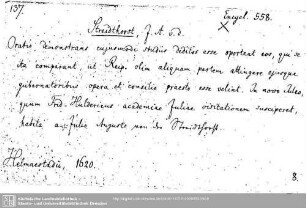 137.
Encycl. 558.
Streithorst, J. A. v. d.
Oratio, demonstrans cujusmodi studiis deditos esse oporteat eos, qui se
ita comparant, ut Reip. olim aliquam partem attingere ejusque
gubernatoribus opera et consilio praesto esse velint. In novo Juleo,
quum Frid. Huldericus academiae Juliae visitationem susciperet,
habita a Julio Augusto von der Streithorst.
Helmaestadii, 1620.
8.